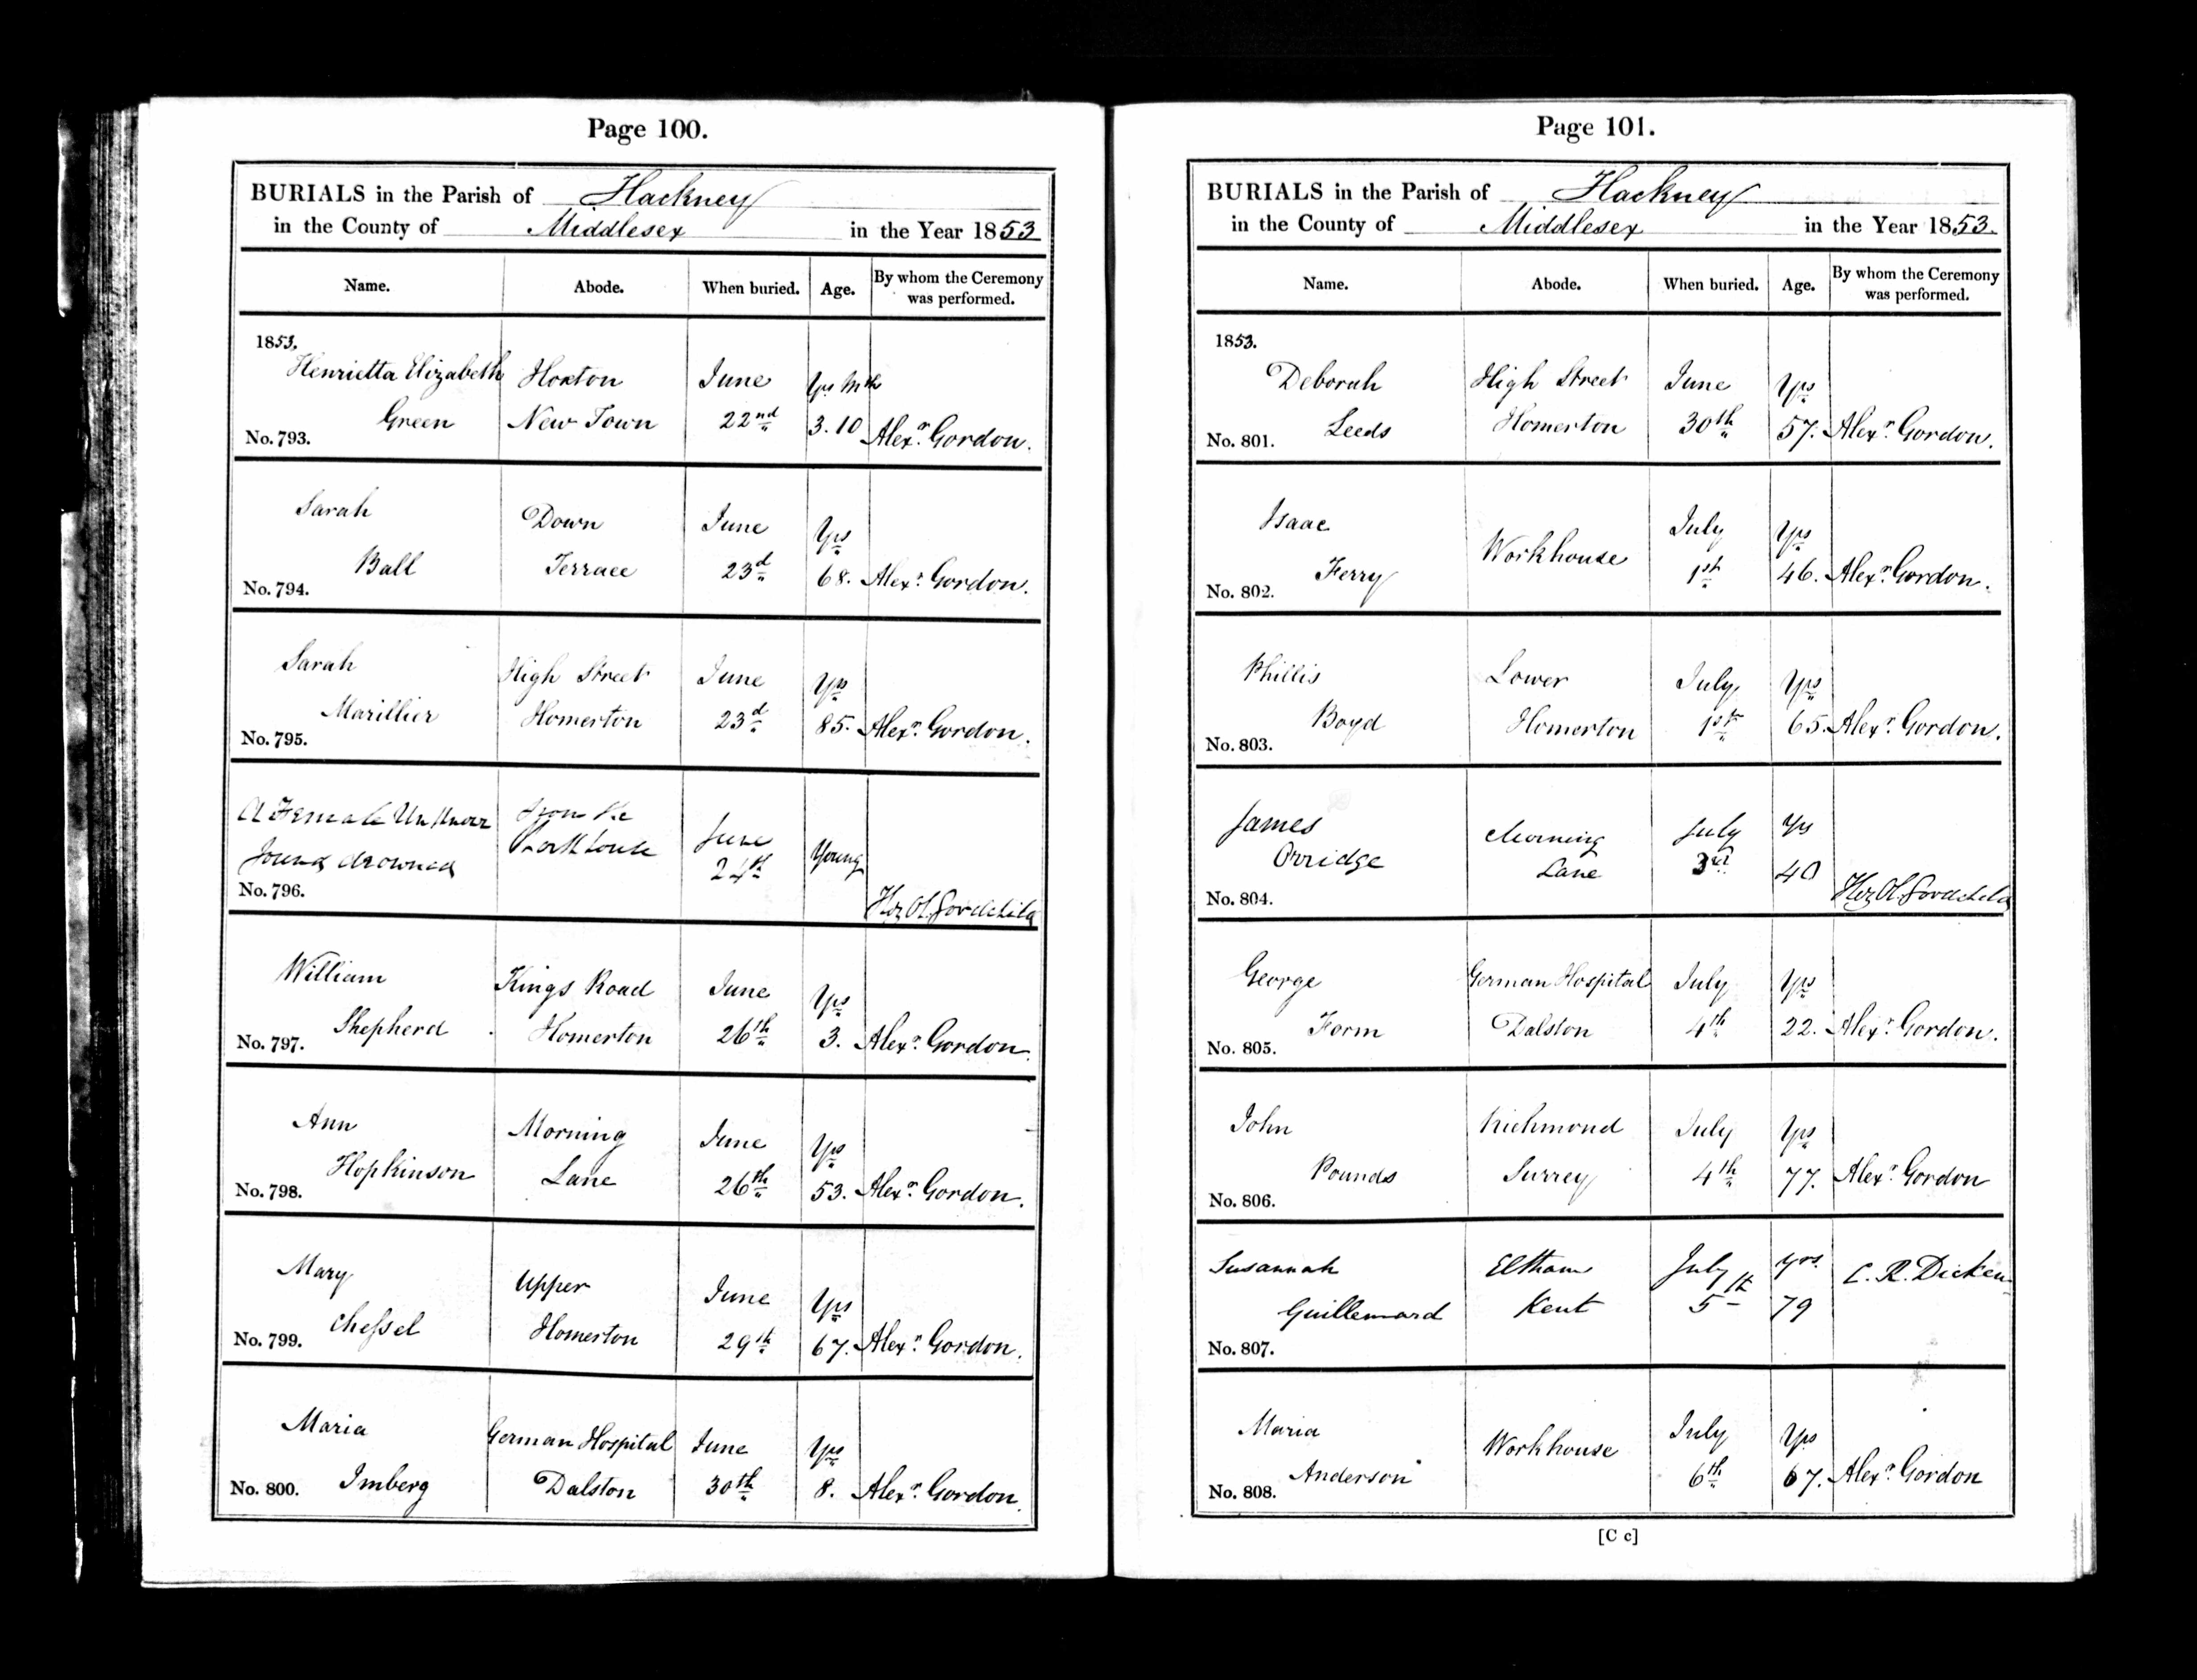 Page 100.
BURIALS in the Parish of Hackney
in the County of Middlesex in the Year 1853
Name. Abode. When buried. Age. By whom the Ceremony was performed.
1853.
Henrietta Elizabeth Hoxton June Yrs Mths
Green New Town 22nd 3. 10 Alexr. Gordon.
No. 793.
Sarah Down June Yrs
Ball Terrace 23d 68. Alexr. Gordon.
No. 794.
Sarah High Street June Yrs
Marillier Homerton 23d 85. Alexr. Gordon.
No. 795.
A Female Unknown from the June
found drowned Workhouse 24th Young
No. 796.
William Kings Road June Yrs
Shepherd Homerton 26th 3. Alexr. Gordon
No. 797.
Ann Morning June Yrs
Hopkinson Lane 26th 53. Alexr. Gordon.
No. 798.
Mary Upper June Yrs
Chessel Homerton 29th 67. Alexr. Gordon.
No. 799.
Maria German Hospital June Yrs
Imberg Dalston 30th 8. Alexr. Gordon.
No. 800.
Page 101.
BURIALS in the Parish of Hackney
in the County of Middlesex in the Year 1853.
Name. Abode. When buried. Age. By whom the Ceremony was performed.
1853.
Deborah High Street June Yrs
Leeds Homerton 30th 57. Alexr. Gordon.
No. 801.
Isaac July Yrs
Ferry Workhouse 1st 46. Alexr. Gordon.
No. 802.
Phillis Lower July Yrs
Boyd Homerton 1st 65. Alexr. Gordon.
No. 803.
James Morning July Yrs
Orridge Lane 3rd 40
No. 804.
George German Hospital July Yrs
Form Dalston 4th 22. Alexr. Gordon.
No. 805.
John Richmond July Yrs
Pounds Surrey 4th 77. Alexr. Gordon
No. 806.
Susannah Eltham July yrs. C. R. Dicken
Guillemard Kent 5th 79
No. 807.
Maria July Yrs
Anderson Workhouse 6th 67. Alexr. Gordon
No. 808.
[C c]